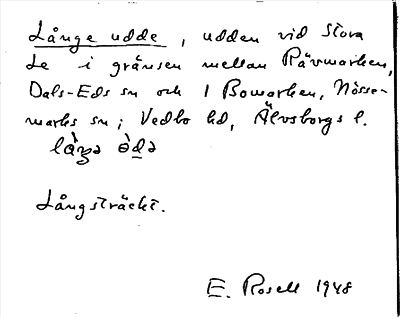 Långe udde, udden vid Stora
Le i gränsen mellan Rävmarken,
Dals-Eds sn och 1 Bomarken, Nösse-
marks sn; Vedbo hd, Älvsborgs l.
Långsträckt.
E. Rosell 1948